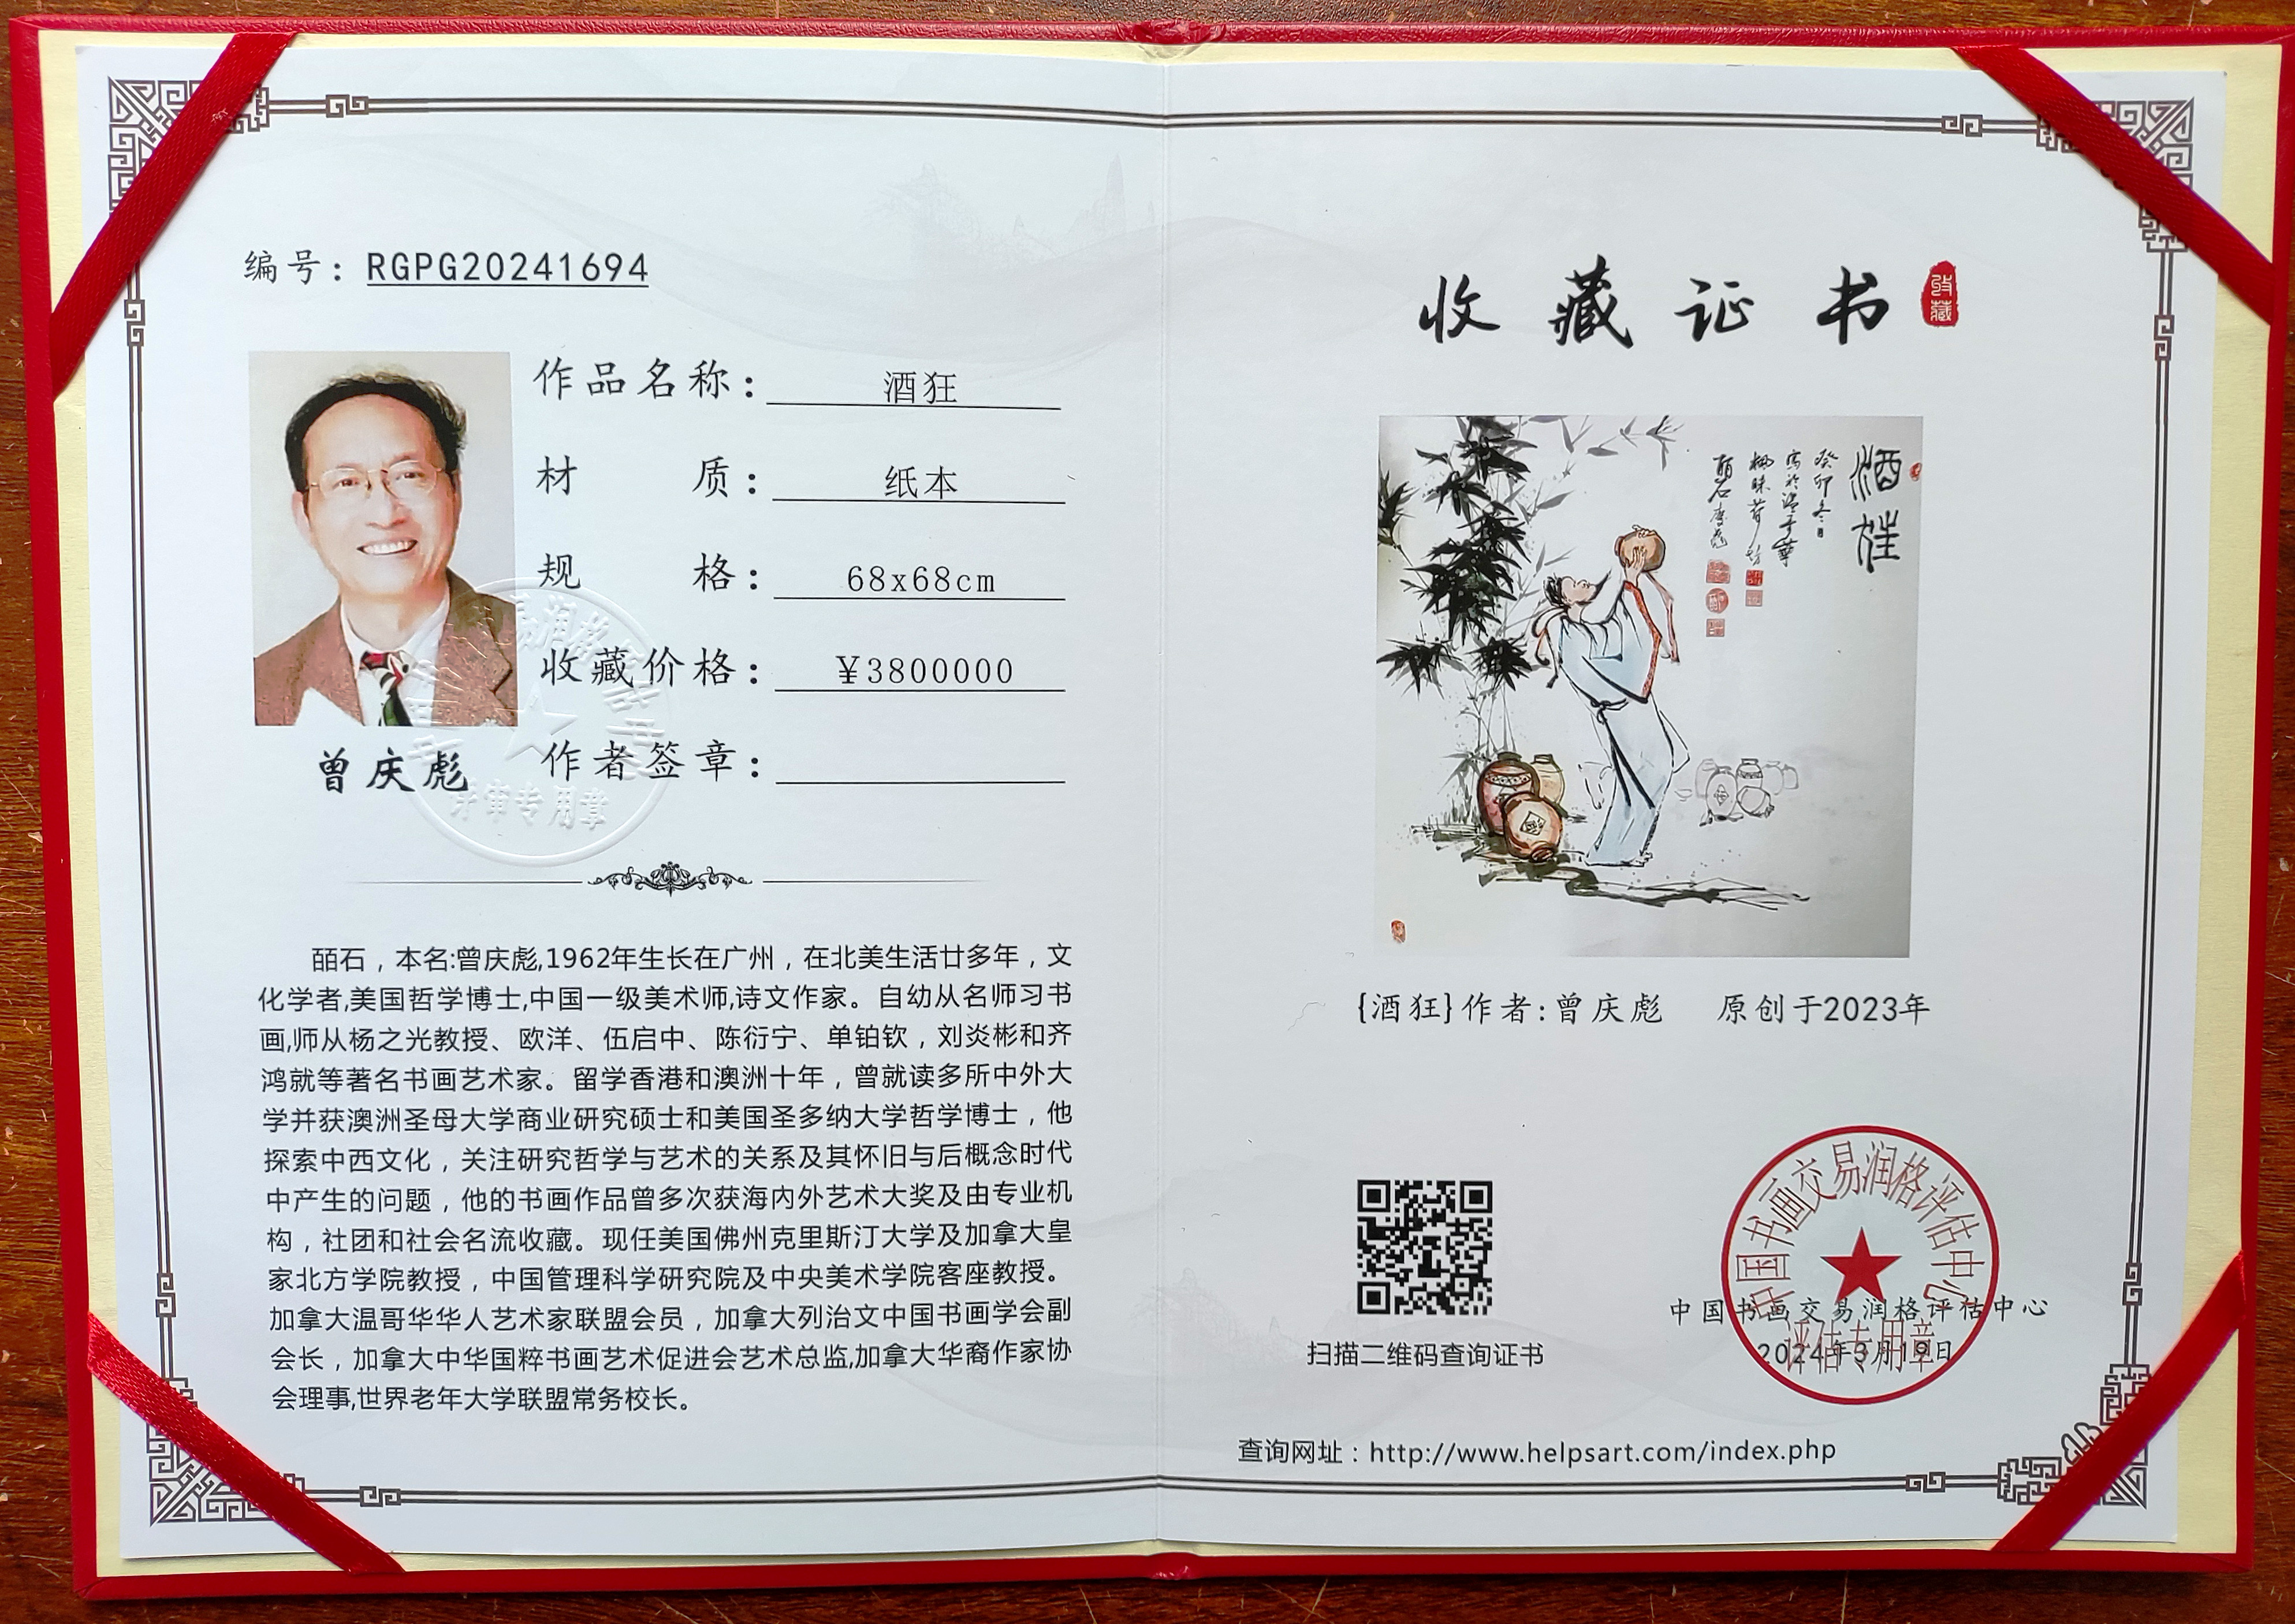 编号：RGPG20241694
作品名称：酒狂
材质：纸本
规格：68x68cm
收藏价格：¥3800000
作者签章：
曾庆彪
评审专用章
皕石，本名:曾庆彪,1962年生长在广州，在北美生活廿多年，文
化学者,美国哲学博士,中国一级美术师,诗文作家。自幼从名师习书
画,师从杨之光教授、欧洋、伍启中、陈衍宁、单铂钦，刘炎彬和齐
鸿就等著名书画艺术家。留学香港和澳洲十年，曾就读多所中外大
学并获澳洲圣母大学商业研究硕士和美国圣多纳大学哲学博士，他
探索中西文化，关注研究哲学与艺术的关系及其怀旧与后概念时代
中产生的问题，他的书画作品曾多次获海内外艺术大奖及由专业机
构，社团和社会名流收藏。现任美国佛州克里斯汀大学及加拿大皇
家北方学院教授，中国管理科学研究院及中央美术学院客座教授。
加拿大温哥华华人艺术家联盟会员，加拿大列治文中国书画学会副
会长，加拿大中华国粹书画艺术促进会艺术总监,加拿大华裔作家协
会理事,世界老年大学联盟常务校长。
收藏证书
收藏
酒狂
癸卯冬日
{酒狂}作者:曾庆彪 原创于2023年
扫描二维码查询证书
中国书画交易润格评估中心
评估专用章
中国书画交易润格评估中心
2024年3月19日
查询网址：http://www.helpsart.com/index.php